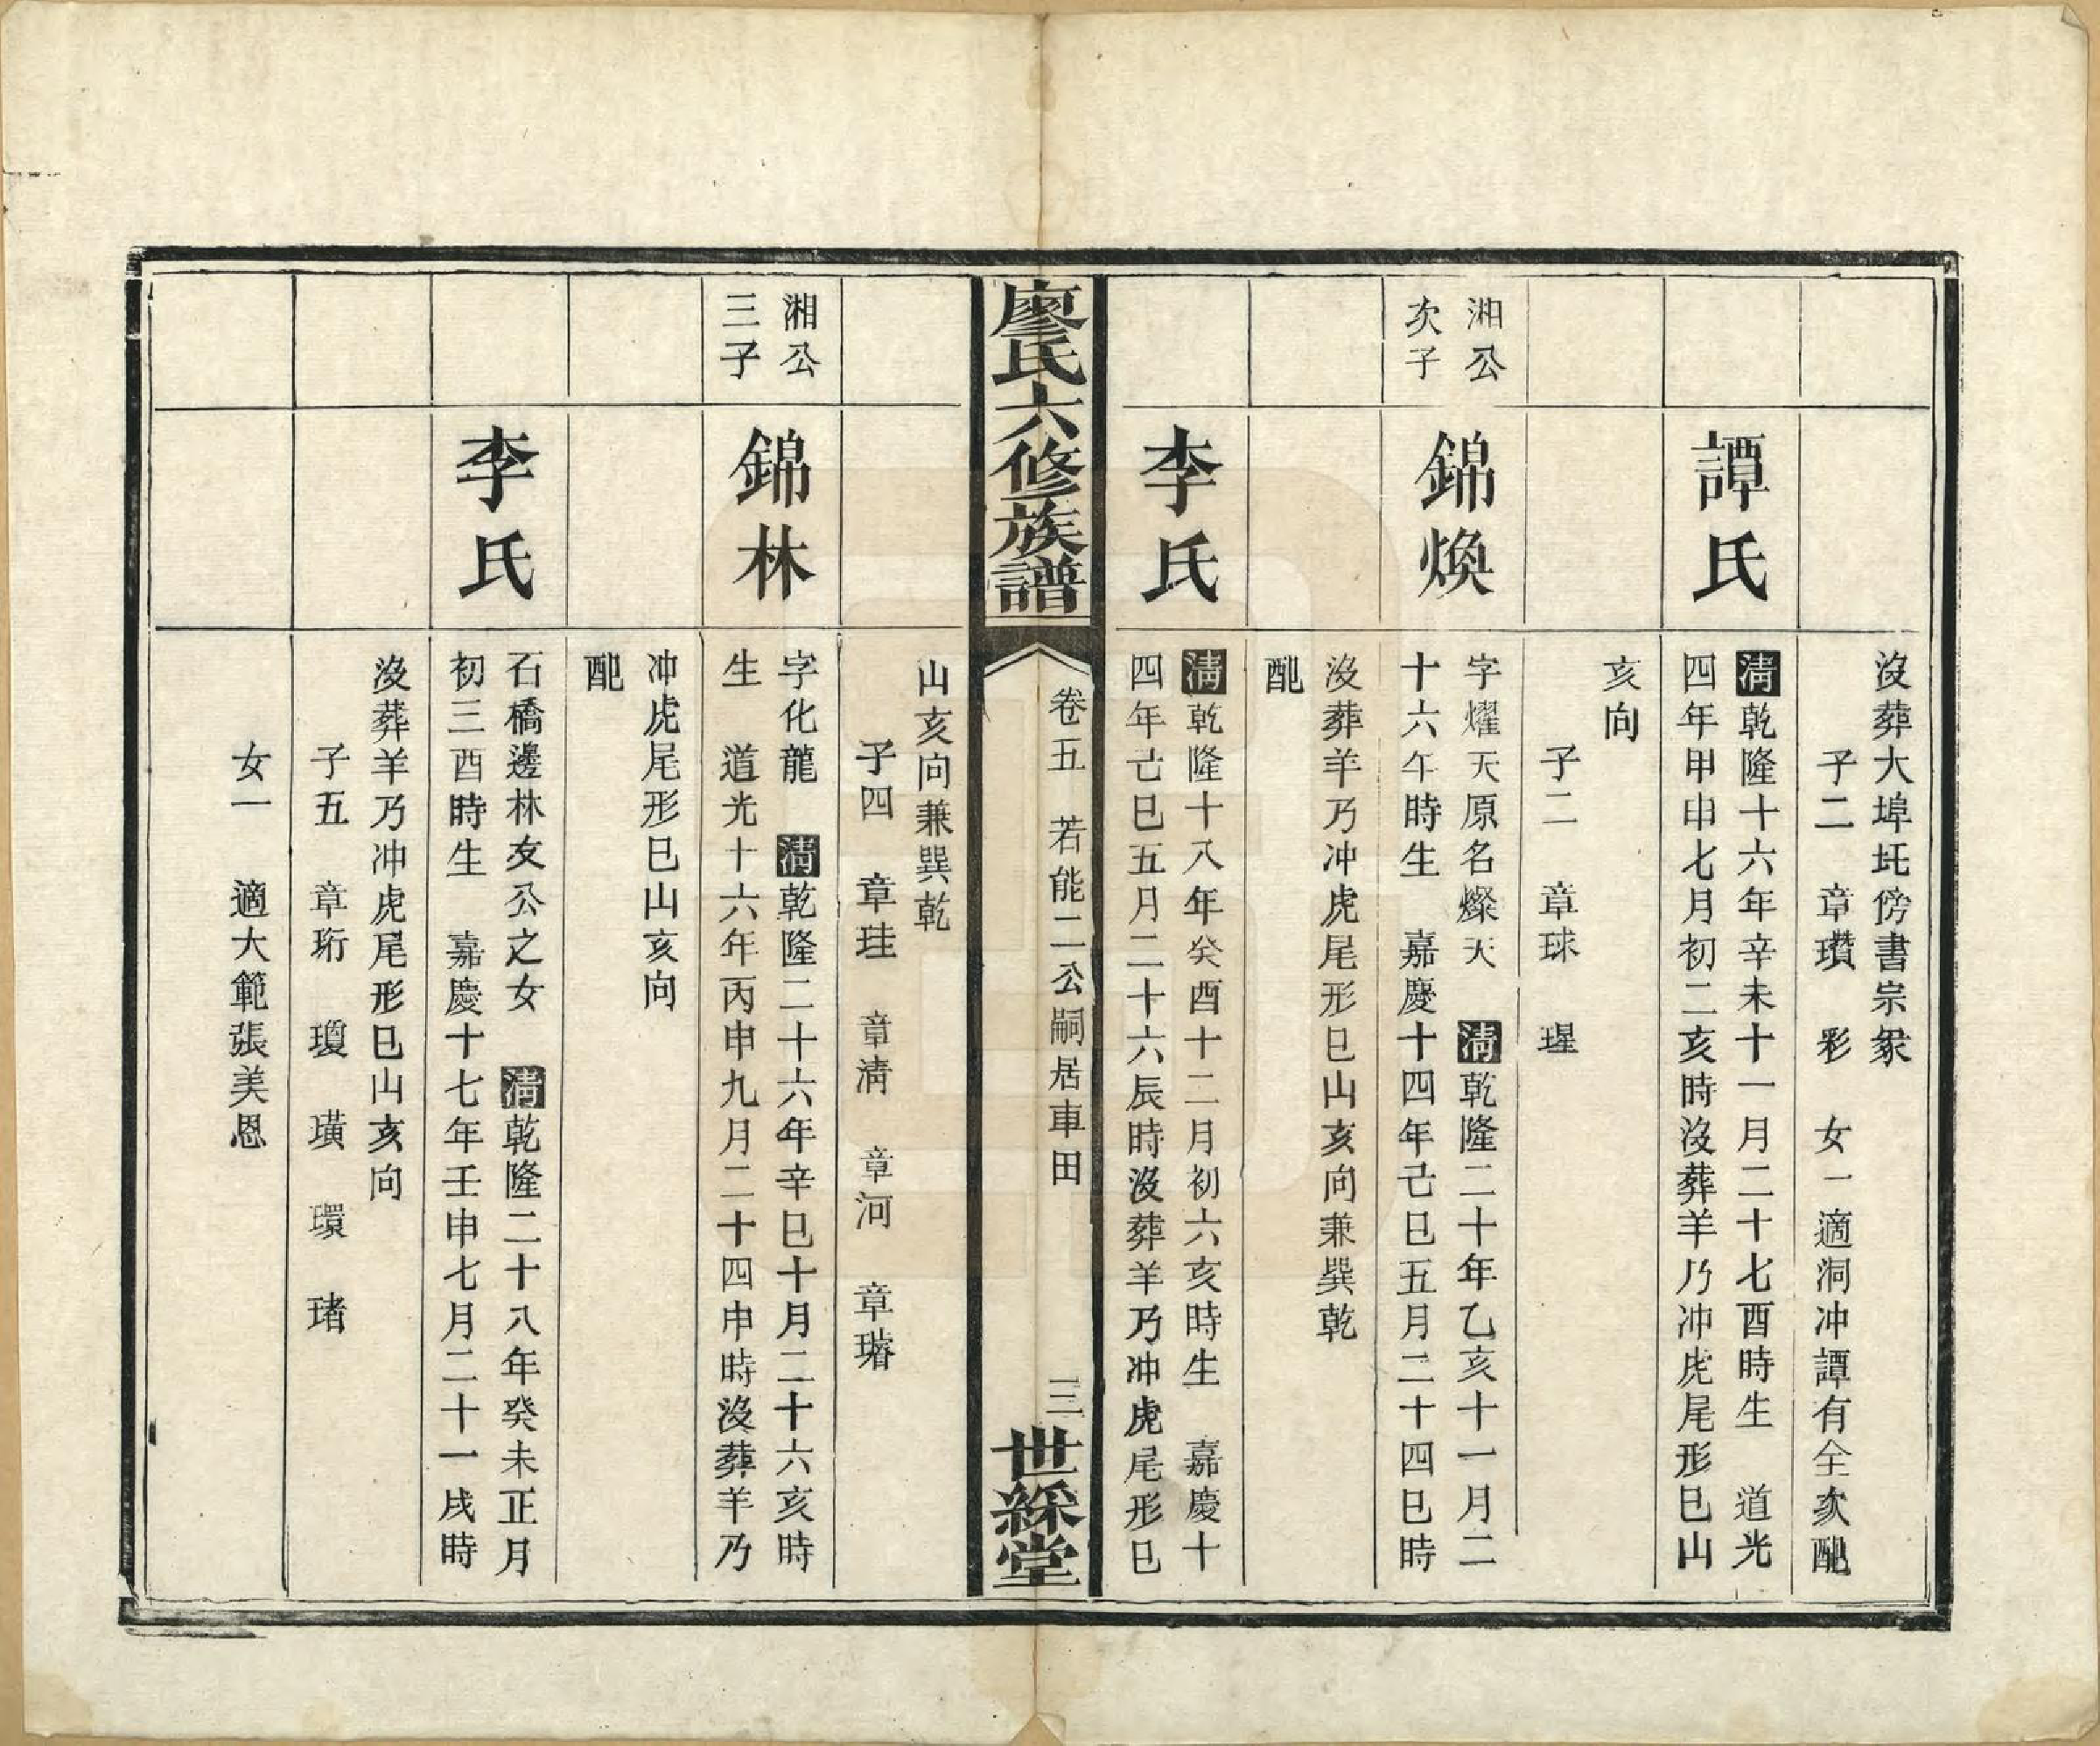 沒葬大埠坵傍書宗衆
子二　章瓚　彩　女一適洞冲譚有全次配
譚氏
清乾隆十六年辛未十一月二十七酉時生　道光
四年甲申七月初二亥時沒葬羊乃冲虎尾形巳山
亥向
子二　章球　瑆
湘公
次子
錦煥
字燿天原名燦天　清乾隆二十年乙亥十一月二
十六午時生　嘉慶十四年己巳五月二十四巳時
沒葬羊乃冲虎尾形巳山亥向兼巽乾
配
李氏
清乾隆十八年癸酉十二月初六亥時生　嘉慶十
四年己巳五月二十六辰時沒葬羊乃冲虎尾形巳
廖氏六修族譜
卷五　若能二公嗣居車田
三
世綵堂
山亥向兼巽乾
子四　章珪　章清　章河　章璿
湘公
三子
錦林
字化龍　清乾隆二十六年辛巳十月二十六亥時
生　道光十六年丙申九月二十四申時沒葬羊乃
冲虎尾形巳山亥向
配
李氏
石橋邊林友公之女　清乾隆二十八年癸未正月
初三酉時生　嘉慶十七年壬申七月二十一戌時
沒葬羊乃冲虎尾形巳山亥向
子五　章珩　瓊　璜　環　瑎
女一　適大範張美恩